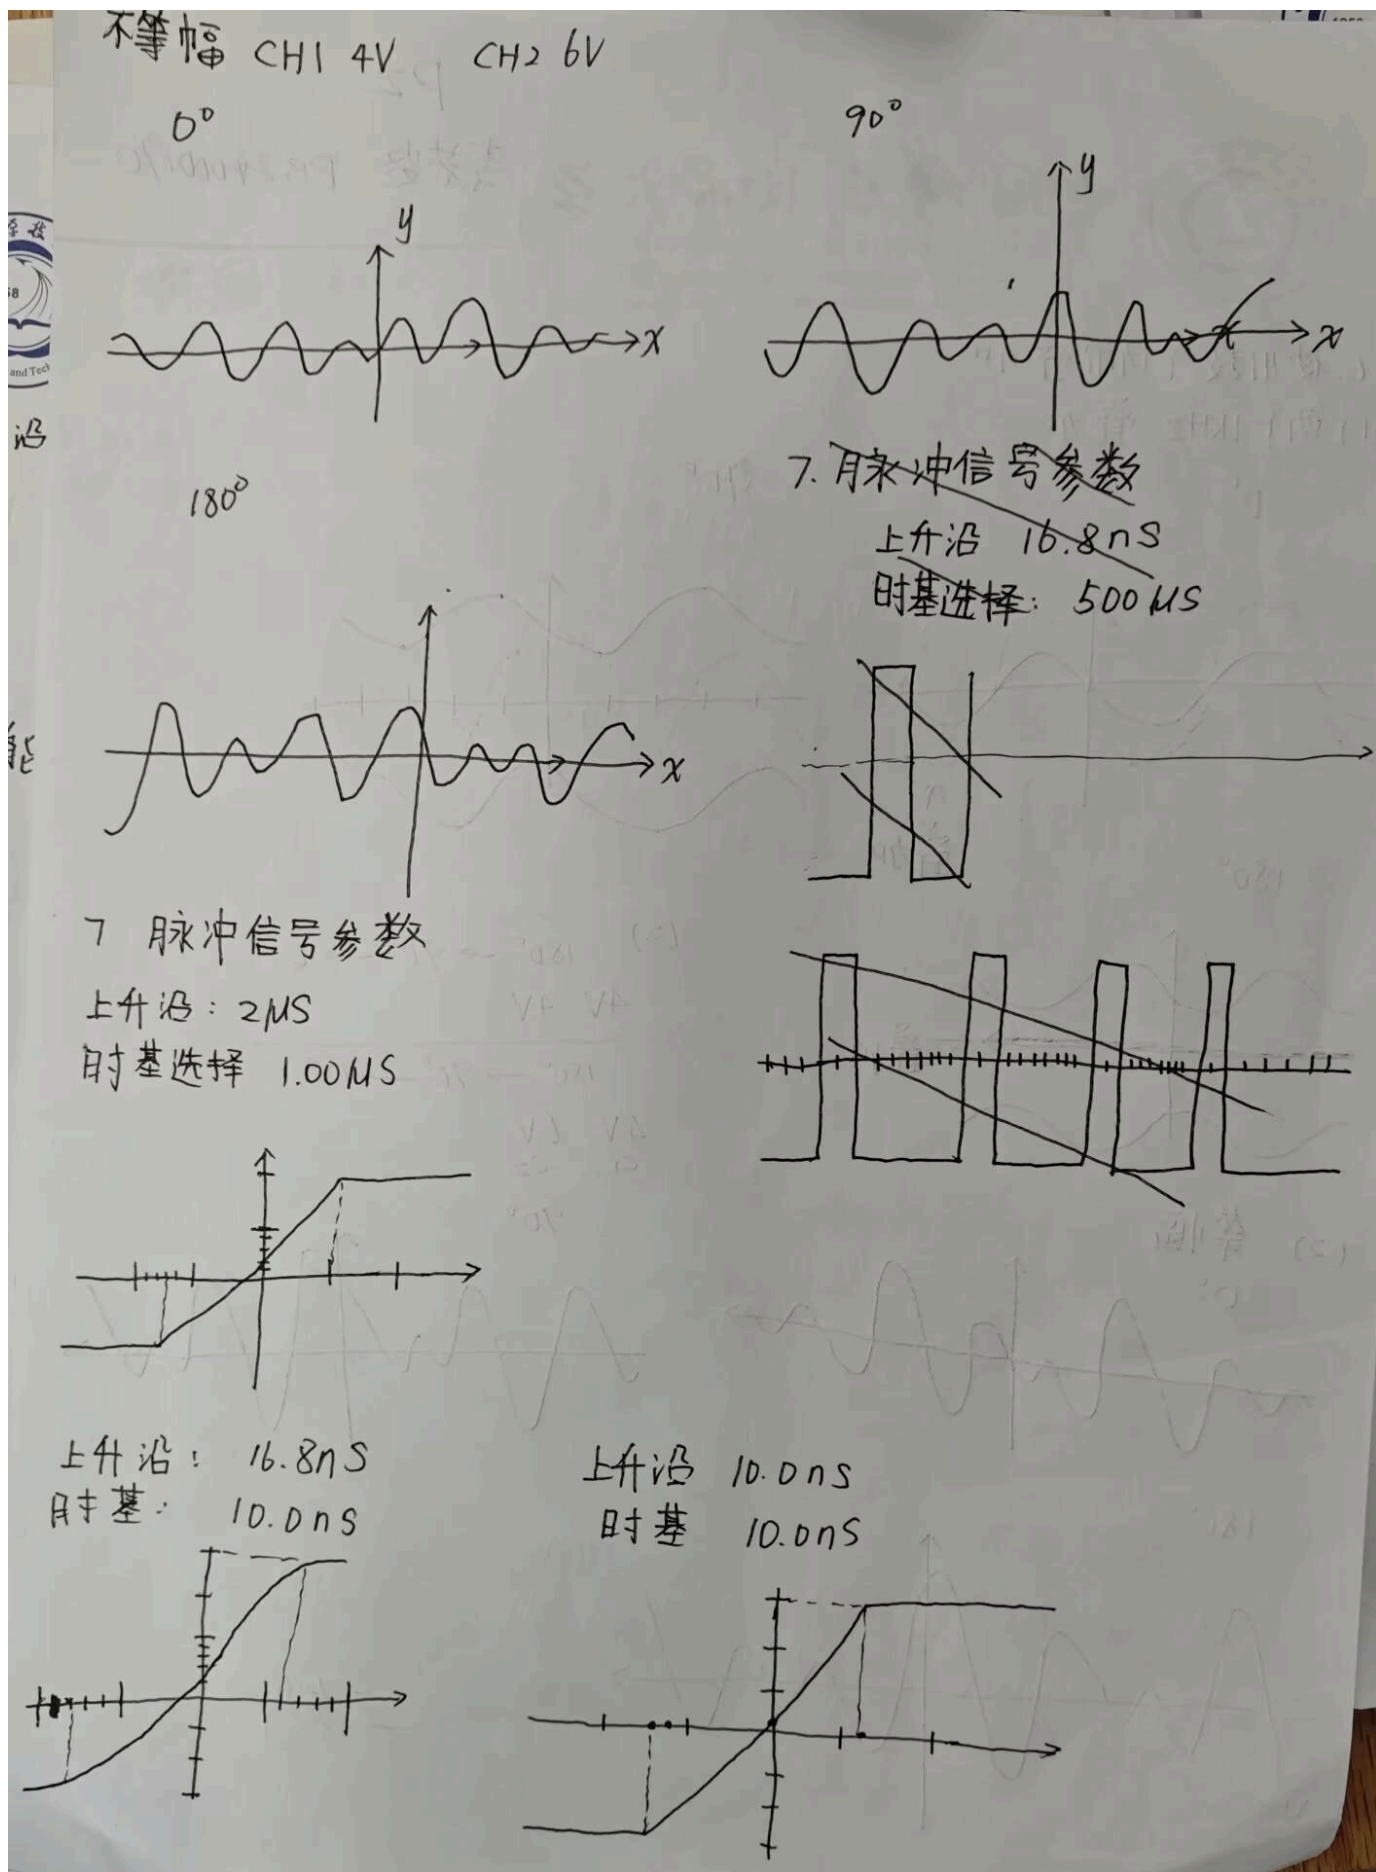 不等幅 CH1 4V CH2 6V
0°
90°
y
y
x
x
x
沿
180°
7. 脉冲信号参数
上升沿 16.8nS
时基选择: 500μS
x
能
7 脉冲信号参数
上升沿: 2μS
时基选择 1.00μS
上升沿: 16.8nS
时基: 10.0nS
上升沿 10.0nS
时基 10.0nS
and Tech